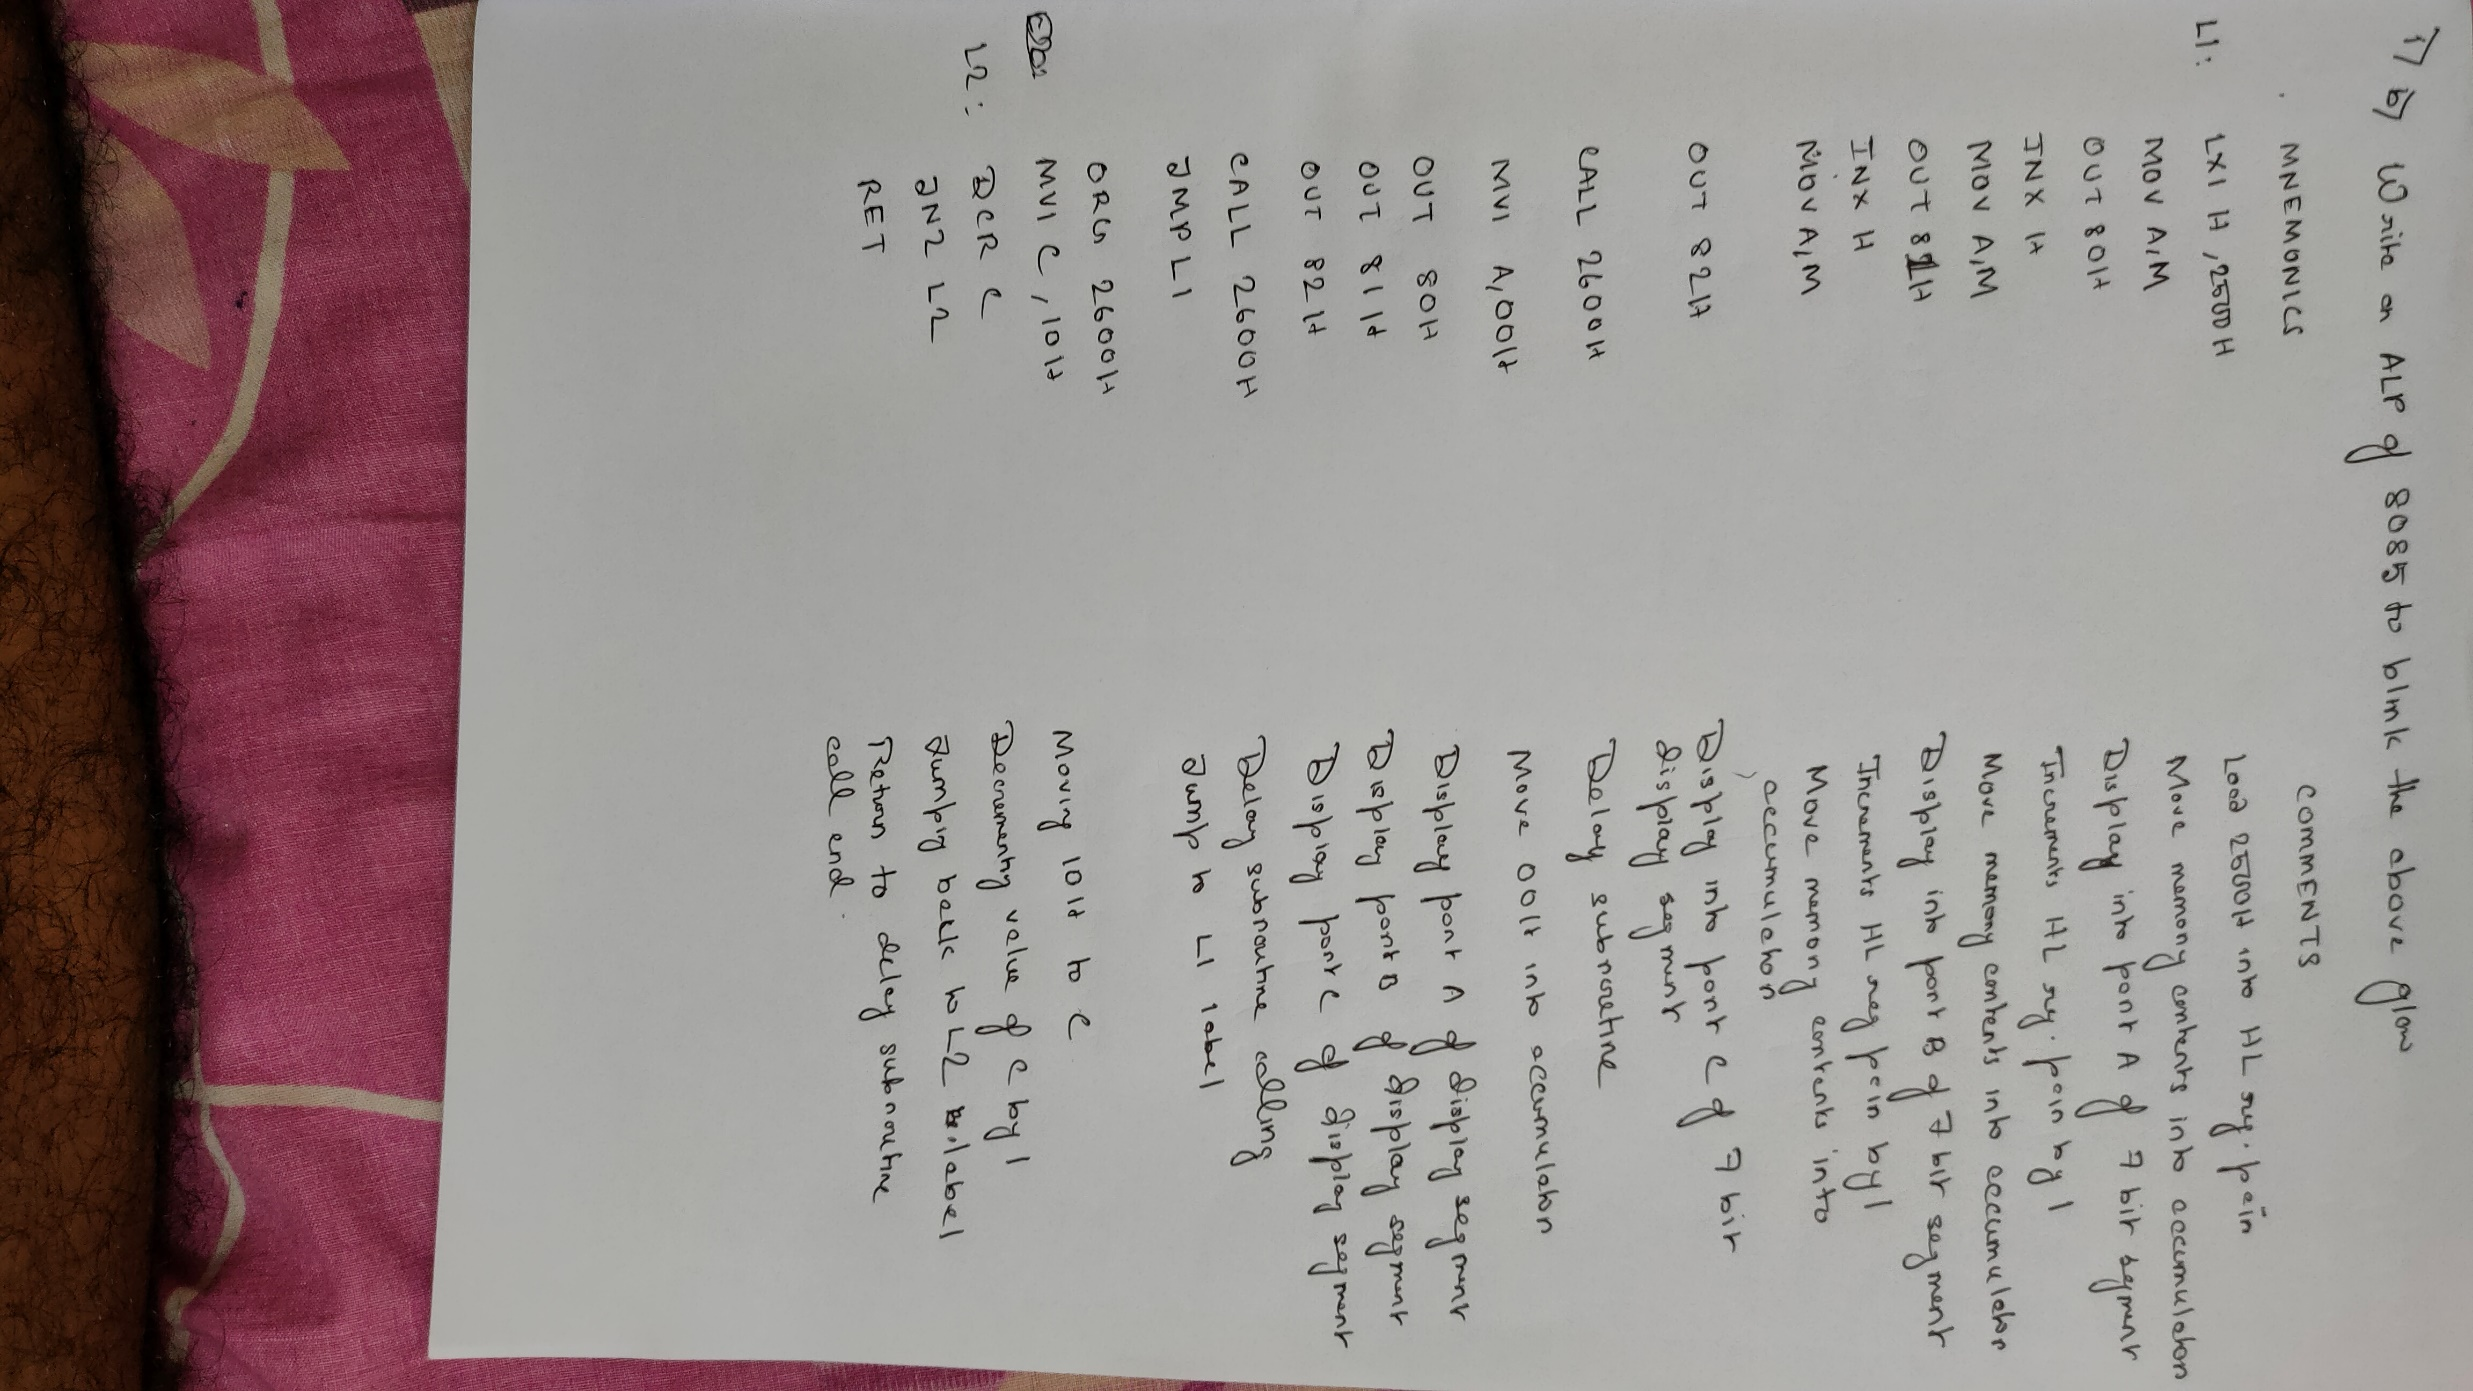 1) b) Write an ALP of 8085 to blink the above glow
MNEMONICS COMMENTS
L1: LXI H, 2500H Load 2500H into HL reg. pair
MOV A,M Move memory contents into accumulator
OUT 80H Display into port A of 7 bit segment
INX H Increments HL reg. pair by 1
MOV A,M Move memory contents into accumulator
OUT 81H Display into port B of 7 bit segment
INX H Increments HL reg pair by 1
MOV A,M Move memory contents into
accumulator
OUT 82H Display into port C of 7 bit
display segment
CALL 2600H Delay subroutine
MVI A,00H Move 00H into accumulator
OUT 80H Display port A of display segment
OUT 81H Display port B of display segment
OUT 82H Display port C of display segment
CALL 2600H Delay subroutine calling
JMP L1 Jump to L1 label
ORG 2600H
MVI C, 10H Moving 10H to C
L2: DCR C Decrementing value of C by 1
JNZ L2 Jumping back to L2 label
RET Return to delay subroutine
call end.